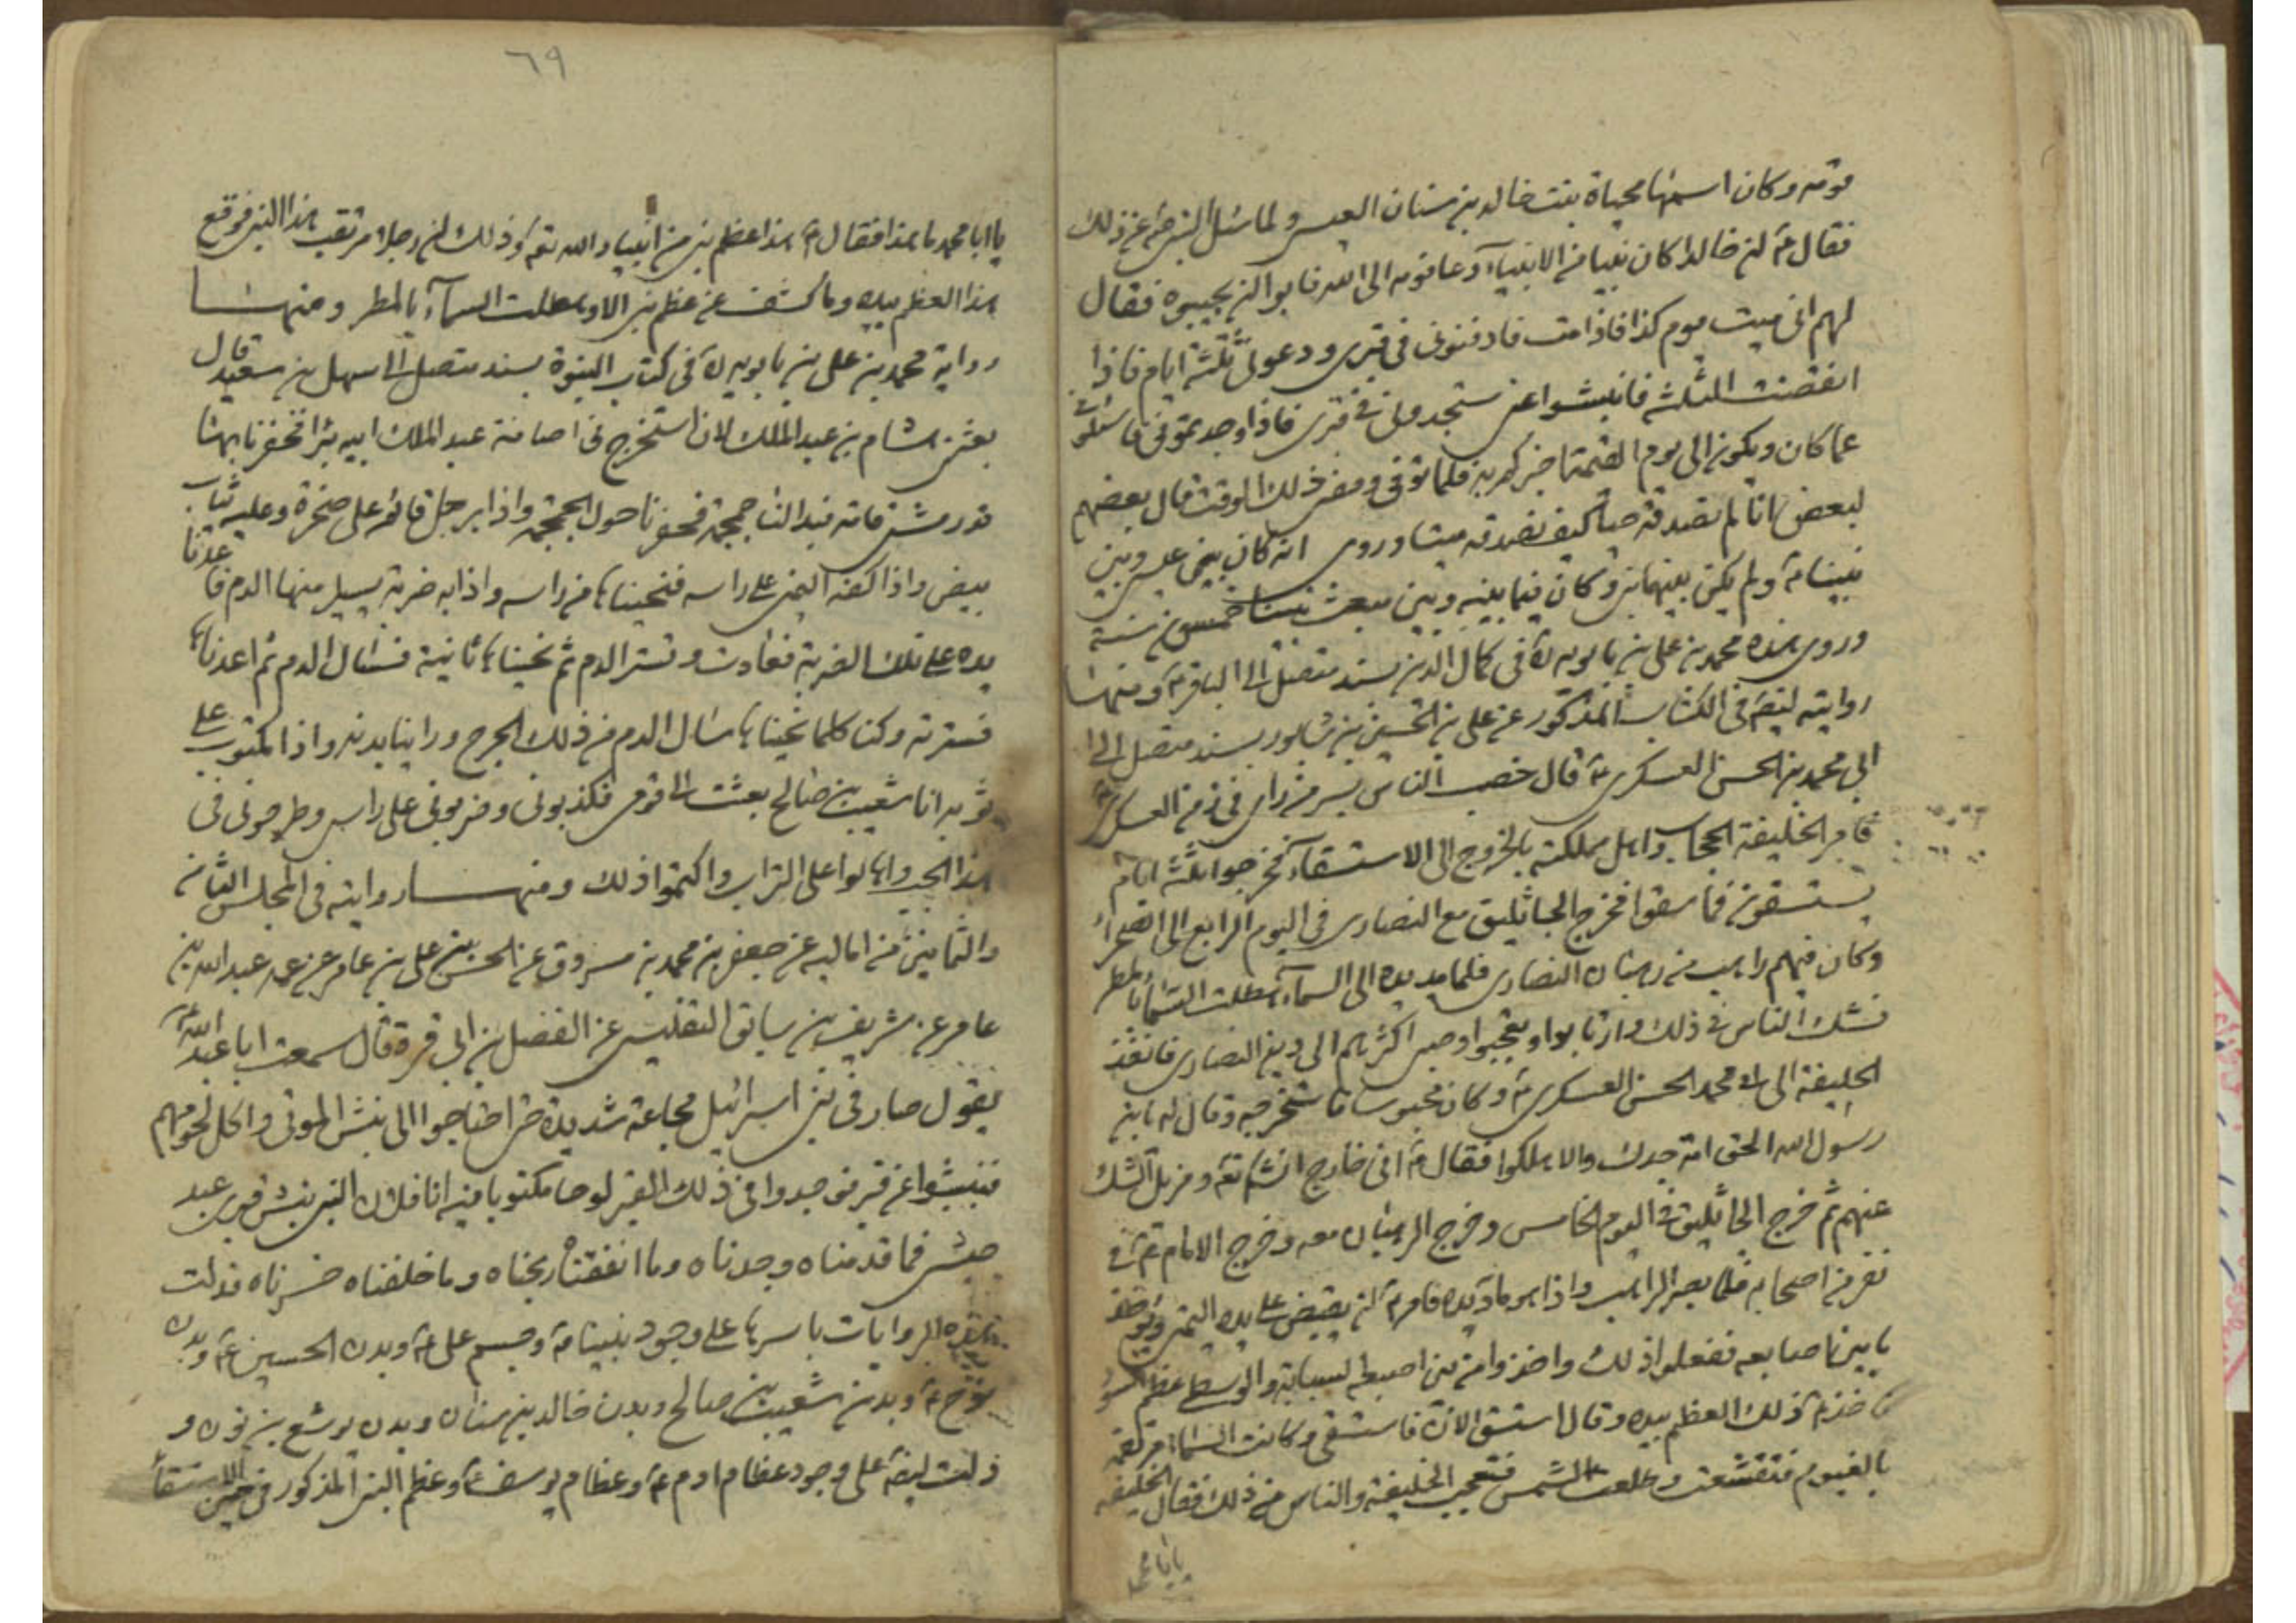 قومه وكان اسمها محياة بنت خالد بن سنان العبسي ولما سئل النبي ص عن ذلك
فقال ع ان خالدا كان نبيا من الانبياء دعا قومه الى الله فابوا ان يجيبوه فقال
لهم انى ميت يوم كذا فاذا مت فادفنونى فى قبرى ودعونى ثلثة ايام فاذا
انقضت الثلثة فانبشوا عنى ستجدونى فى قبرى فاذا وجدتمونى فاسئلونى
عما كان ويكون الى يوم القيمة اخبركم به فلما توفى ومضى ذلك الوقت قال بعضهم
لبعض انا لم نصدقه حيا كيف نصدقه ميتا وروى انه كان بين عيسى وبين
نبينا ص ولم يكن بينهما نبى وكان فيما بينه وبين مبعث نبينا خمسون سنة
وروى هذه محمد بن على بن بابويه ره فى كمال الدين بسند متصل الى الباقر ع ومنها
روايته ايضا فى الكتاب المذكور عن على بن الحسين بن شابور بسند متصل الى
ابى محمد بن الحسن العسكرى ع قال خصب الناس بسر من راى فى زمن العسكرى ع
فامر الخليفة الحجاب واهل مملكته بالخروج الى الاستسقاء فخرجوا ثلثة ايام
يستسقون فما سقوا فخرج الجاثليق مع النصارى فى اليوم الرابع الى الصحراء
وكان فيهم راهب من رهبان النصارى فلما مد يده الى السماء هطلت السماء بالمطر
فشك الناس فى ذلك وارتابوا وتعجبوا وصبى اكثرهم الى دين النصارى فانفذ
الخليفة الى ابى محمد الحسن العسكرى ع وكان محبوسا فاستخرجه وقال له يابن
رسول الله الحق امة جدك والا هلكوا فقال ع انى خارج انشاء تعم ومزيل الشك
عنهم ثم خرج الجاثليق فى اليوم الخامس وخرج الرهبان معه وخرج الامام ع فى
نفر من اصحابه فلما بصر الراهب واذا هو ماد يده فامر ع ان يقبض على يده اليمنى ويؤخذ
ما بين اصابعه ففعلوا ذلك واخذوا من بين اصبعيه السبابة والوسطى عظم اسود
فاخذه ع ذلك العظم بيده وقال استسق الان فاستسقى وكانت السماء مرتقعه
بالغيوم فتقشعت وطلعت الشمس فتعجب الخليفة والناس من ذلك فقال الخليفه
يا ابا محمد
٦٩
يا ابا محمد ما هذا فقال ع هذا عظم نبى من انبياء الله تعم وذلك ان رجلا مر بقبر هذا النبى فوقع
هذا العظم بيده وما كشف عن عظم نبى الا وهطلت السماء بالمطر ومنها
رواية محمد بن على بن بابويه ره فى كتاب النبوة بسند متصل الى سهل بن سعيد قال
بعثنى هشام بن عبد الملك لان استخرج فى رصافة عبد الملك ابيه بئرا فحفرنا بها
قدر مشتى قامة فبدا لنا جمجمة فحفرنا حول الجمجمة واذا برجل قائم على صخرة وعليه ثياب
بيض واذا كفه اليمنى على راسه فنحيناها من راسه واذا به ضربة يسيل منها الدم فاعدنا
يده على تلك الضربة فعادت وتستر الدم ثم نحيناها ثانية فسال الدم ثم اعدناها
فسترته وكنا كلما نحيناها سال الدم من ذلك الجرح وراينا بدنه واذا مكتوب على
ثوبه انا شعيب بن صالح بعثت الى قومى فكذبونى وضربونى على راسى وطرحونى فى
هذا الجب واهالوا على التراب واكتموا ذلك ومنها روايته فى المجلس الثانى
والثمانين من اماليه عن جعفر بن محمد بن مسروق عن الحسن بن على بن عامر عن عمه عبد الله بن
عامر عن شريف بن سابق التفليسى عن الفضل بن ابى قرة قال سمعت ابا عبد الله ع
يقول صار فى بنى اسرائيل مجاعة شديدة حتى احتاجوا الى نبش الموتى واكل لحومهم
فنبشوا عن قبر فوجدوا فى ذلك القبر لوحا مكتوبا فيه انا فلان النبى ينبش قبرى عبد
حبشى فما قدمناه وجدناه وما انفقناه ربحناه وما خلفناه خسرناه فدلت
هذه الروايات باسرها على وجود نبينا ص وجسم على ع وبدن الحسين ع وبدن
نوح ع وبدن شعيب بن صالح وبدن خالد بن سنان وبدن يوشع بن نون و
ذلت ايضا على وجود عظام ادم ع وعظام يوسف ع وعظم النبى المذكور فى حين الاستسقاء